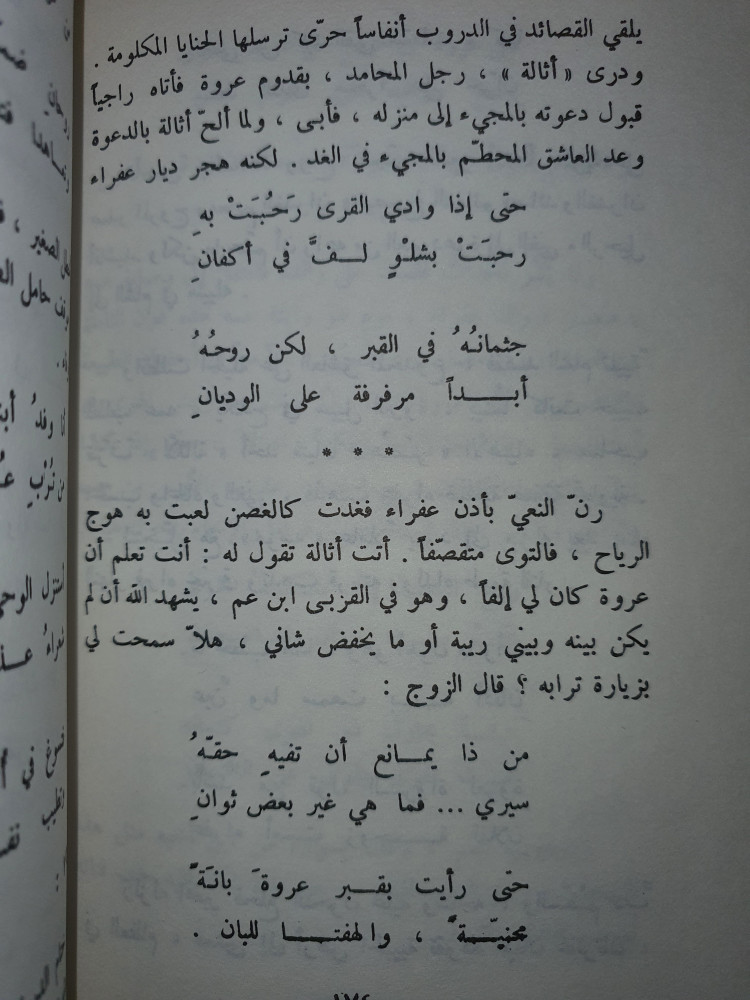 يلقي القصائد في الدروب أنفاساً حرّى ترسلها الحنايا المكلومة .
ودرى « أثالة » ، رجل المحامد ، بقدوم عروة فأتاه راجياً
قبول دعوته بالمجيء إلى منزله ، فأبى ، ولما ألحّ أثالة بالدعوة
وعد العاشق المحطّم بالمجيء في الغد . لكنه هجر ديار عفراء
حتى إذا وادي القرى رَحُبَتْ بهِ
رحبَتْ بشلْوٍ لــفَّ في أكفانِ
جثمانُهُ في القبر ، لكن روحُهُ
أبــــداً مرفرفة على الوديانِ
* * *
رنّ النعيّ بأذن عفراء فغدت كالغصن لعبت به هوج
الرياح ، فالتوى متقصّفاً . أتت أثالة تقول له : أنت تعلم أن
عروة كان لي إلفاً ، وهو في القربى ابن عم ، يشهد الله أن لم
يكن بينه وبيني ريبة أو ما يخفض شاني ، هلاّ سمحت لي
بزيارة ترابه ؟ قال الزوج :
من ذا يمــانع أن تفيهِ حقـّهُ
سيري ... فما هي غير بعض ثوانِ
حتى رأيت بقــبر عروةَ بانَةً
محنيّــةً ، والهفتــــا للبان .